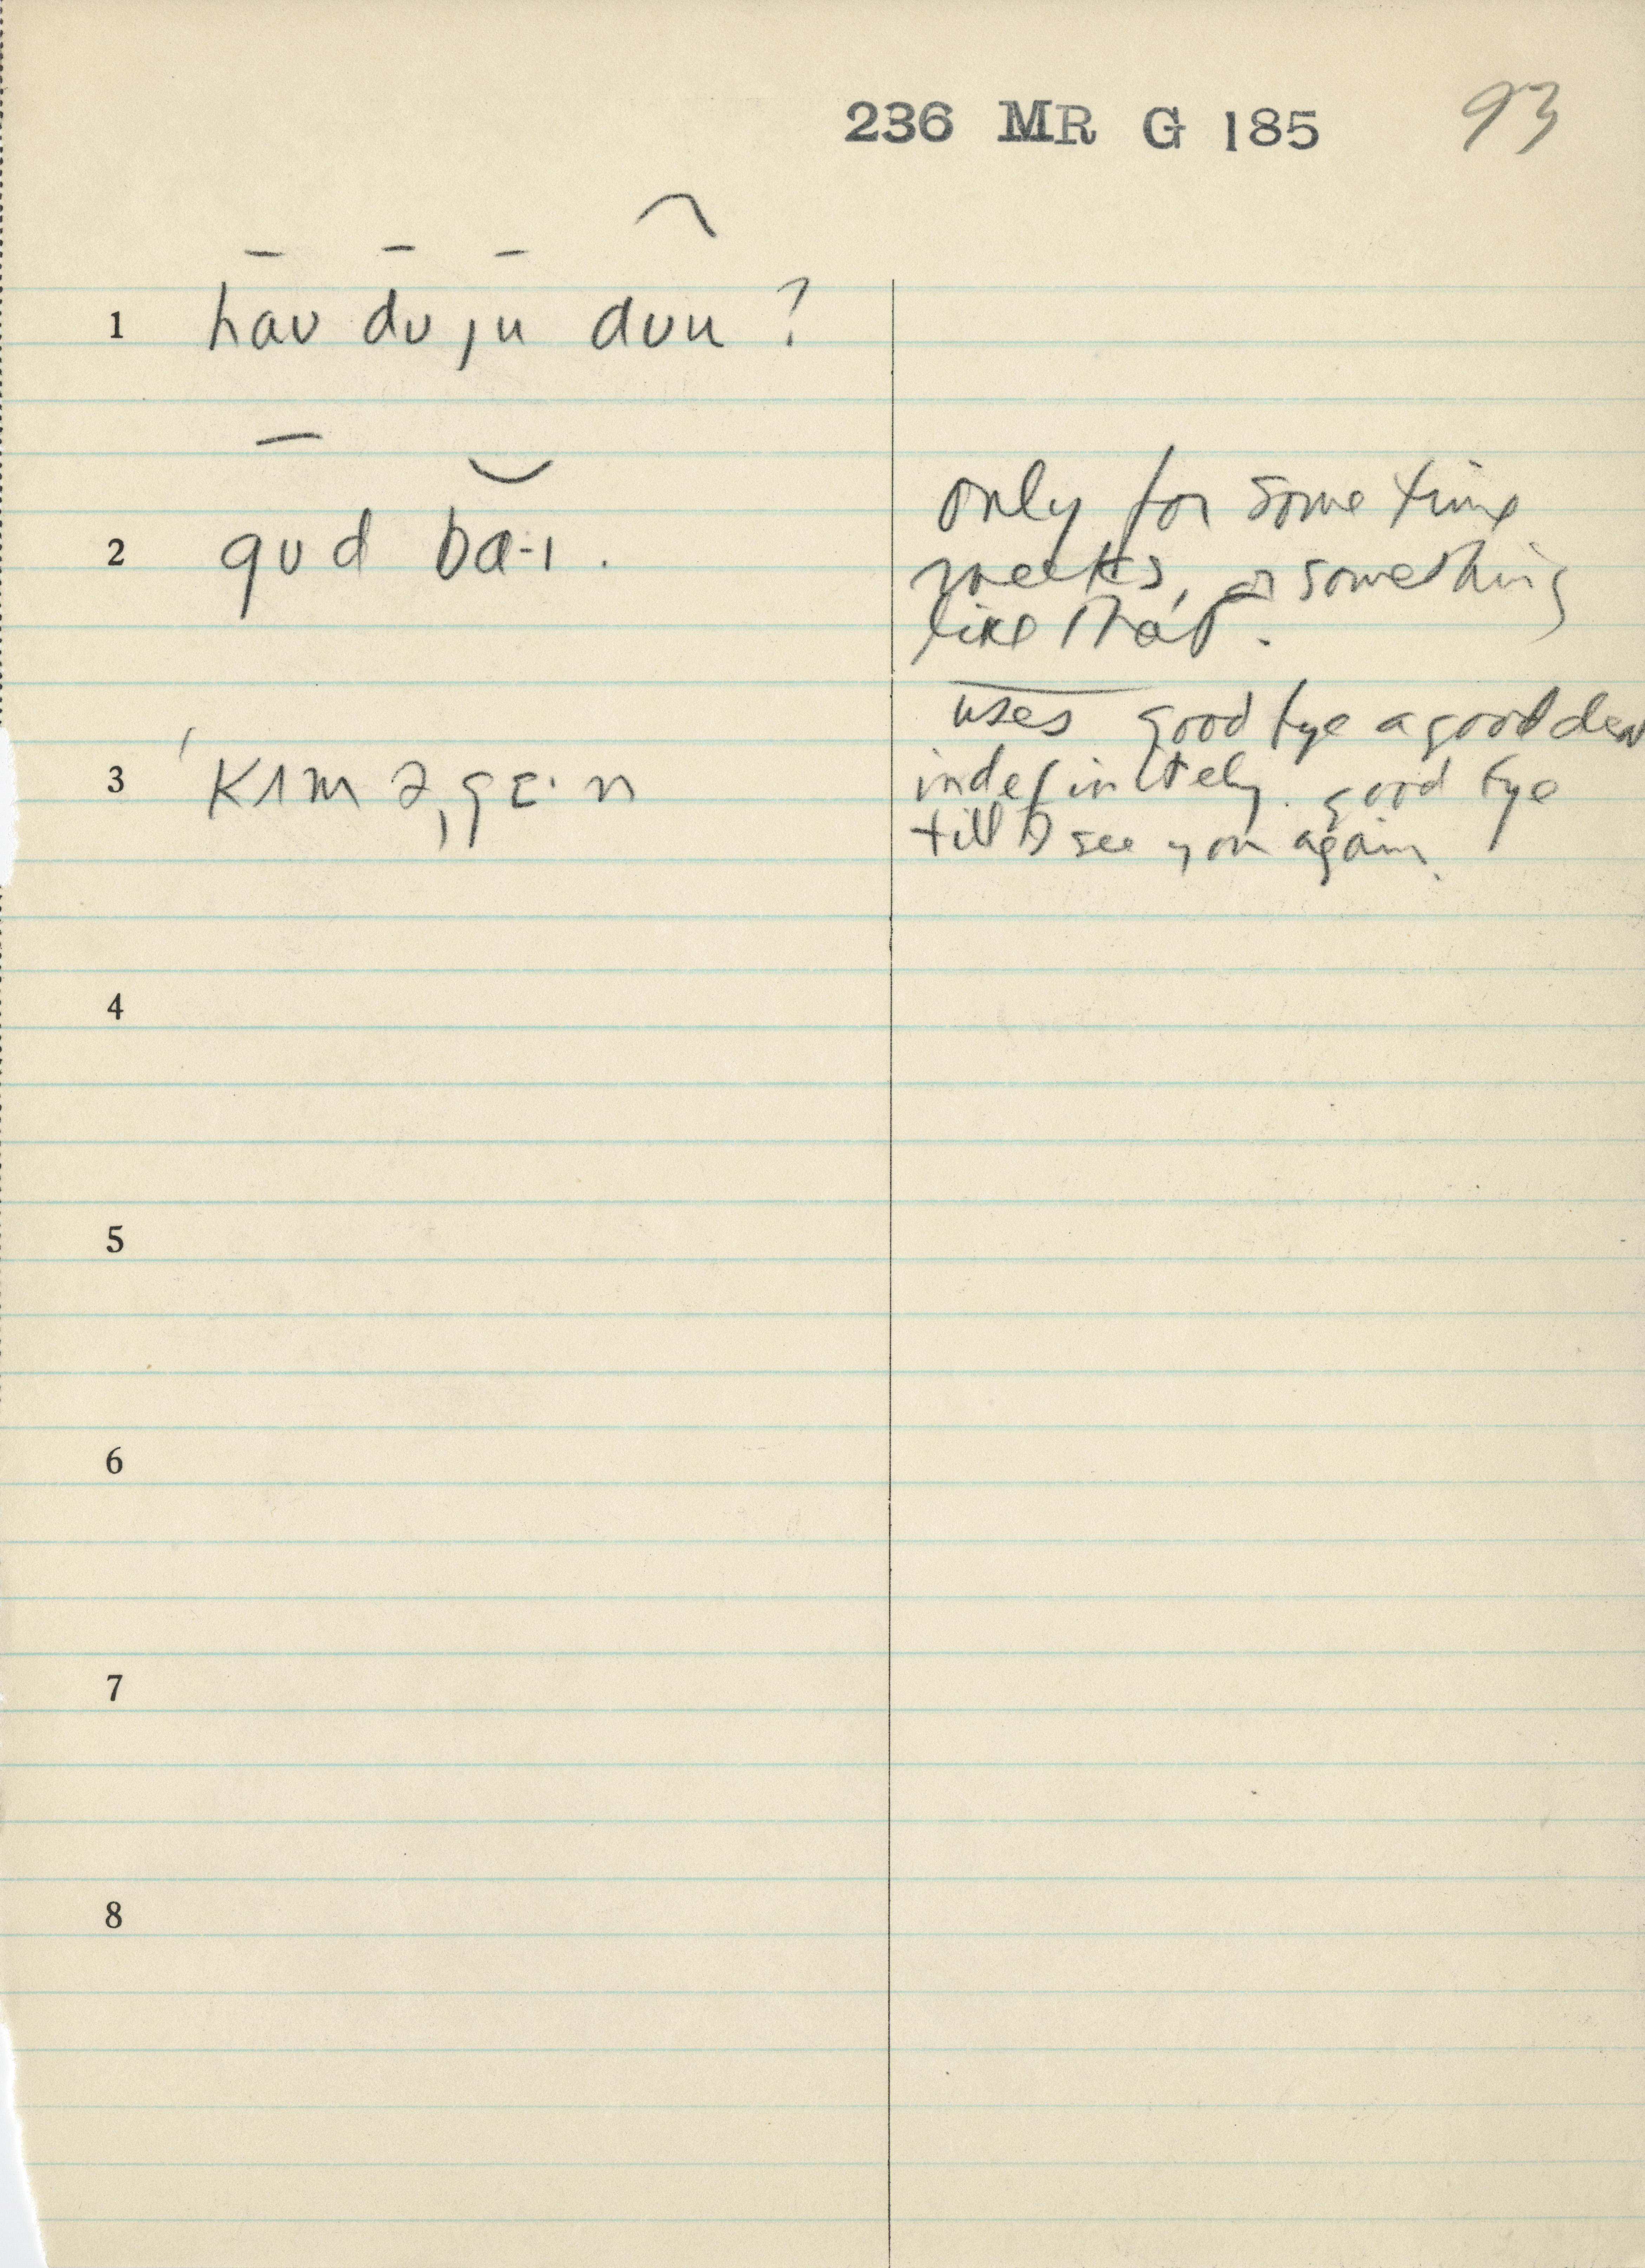 236 MR G 185 93
1 haʊ dʊ ju dʊu ?
2 gʊd ba-ɪ .
only for some time
weeks, or something
like that.
uses good bye a good deal
3 ˈkɪm əˌgɛ·n
indefinitely. good bye
till I see you again.
4
5
6
7
8